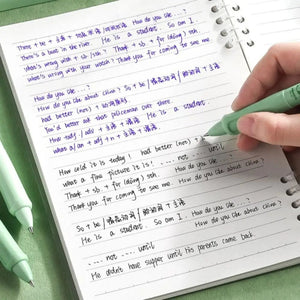 There + be + 主语 + 地点状语/时间状语 How do you like ... ?
There's a book in the river. He is a student. So am I.
What's wrong with + sb /sth ? Thank + sb + for (doing) sth.
What's wrong with your watch? Thank you for coming to see me.
How do you like ... ?
How do you like about China?  So + be /情态动词/助动词 + 主语
had better (not) + 动词原形
You'd better ask that policeman over there.
How + adj / adv + 主语 + 谓语  He is a student.
what a / an + adj + n + 主语 + 谓语
How cold it is today!  had better (not) +
what a fine picture it is!  .... not .... until
Thank + sb + for (doing) sth.  How do you like ... ?
Thank you for coming to see me  How do you like about China?
So + be /情态动词/助动词 + 主语
He is a student. So am I.  How do you like ... ?
.... not .... until  How do you like about China?
He didn't have supper until his parents came back.